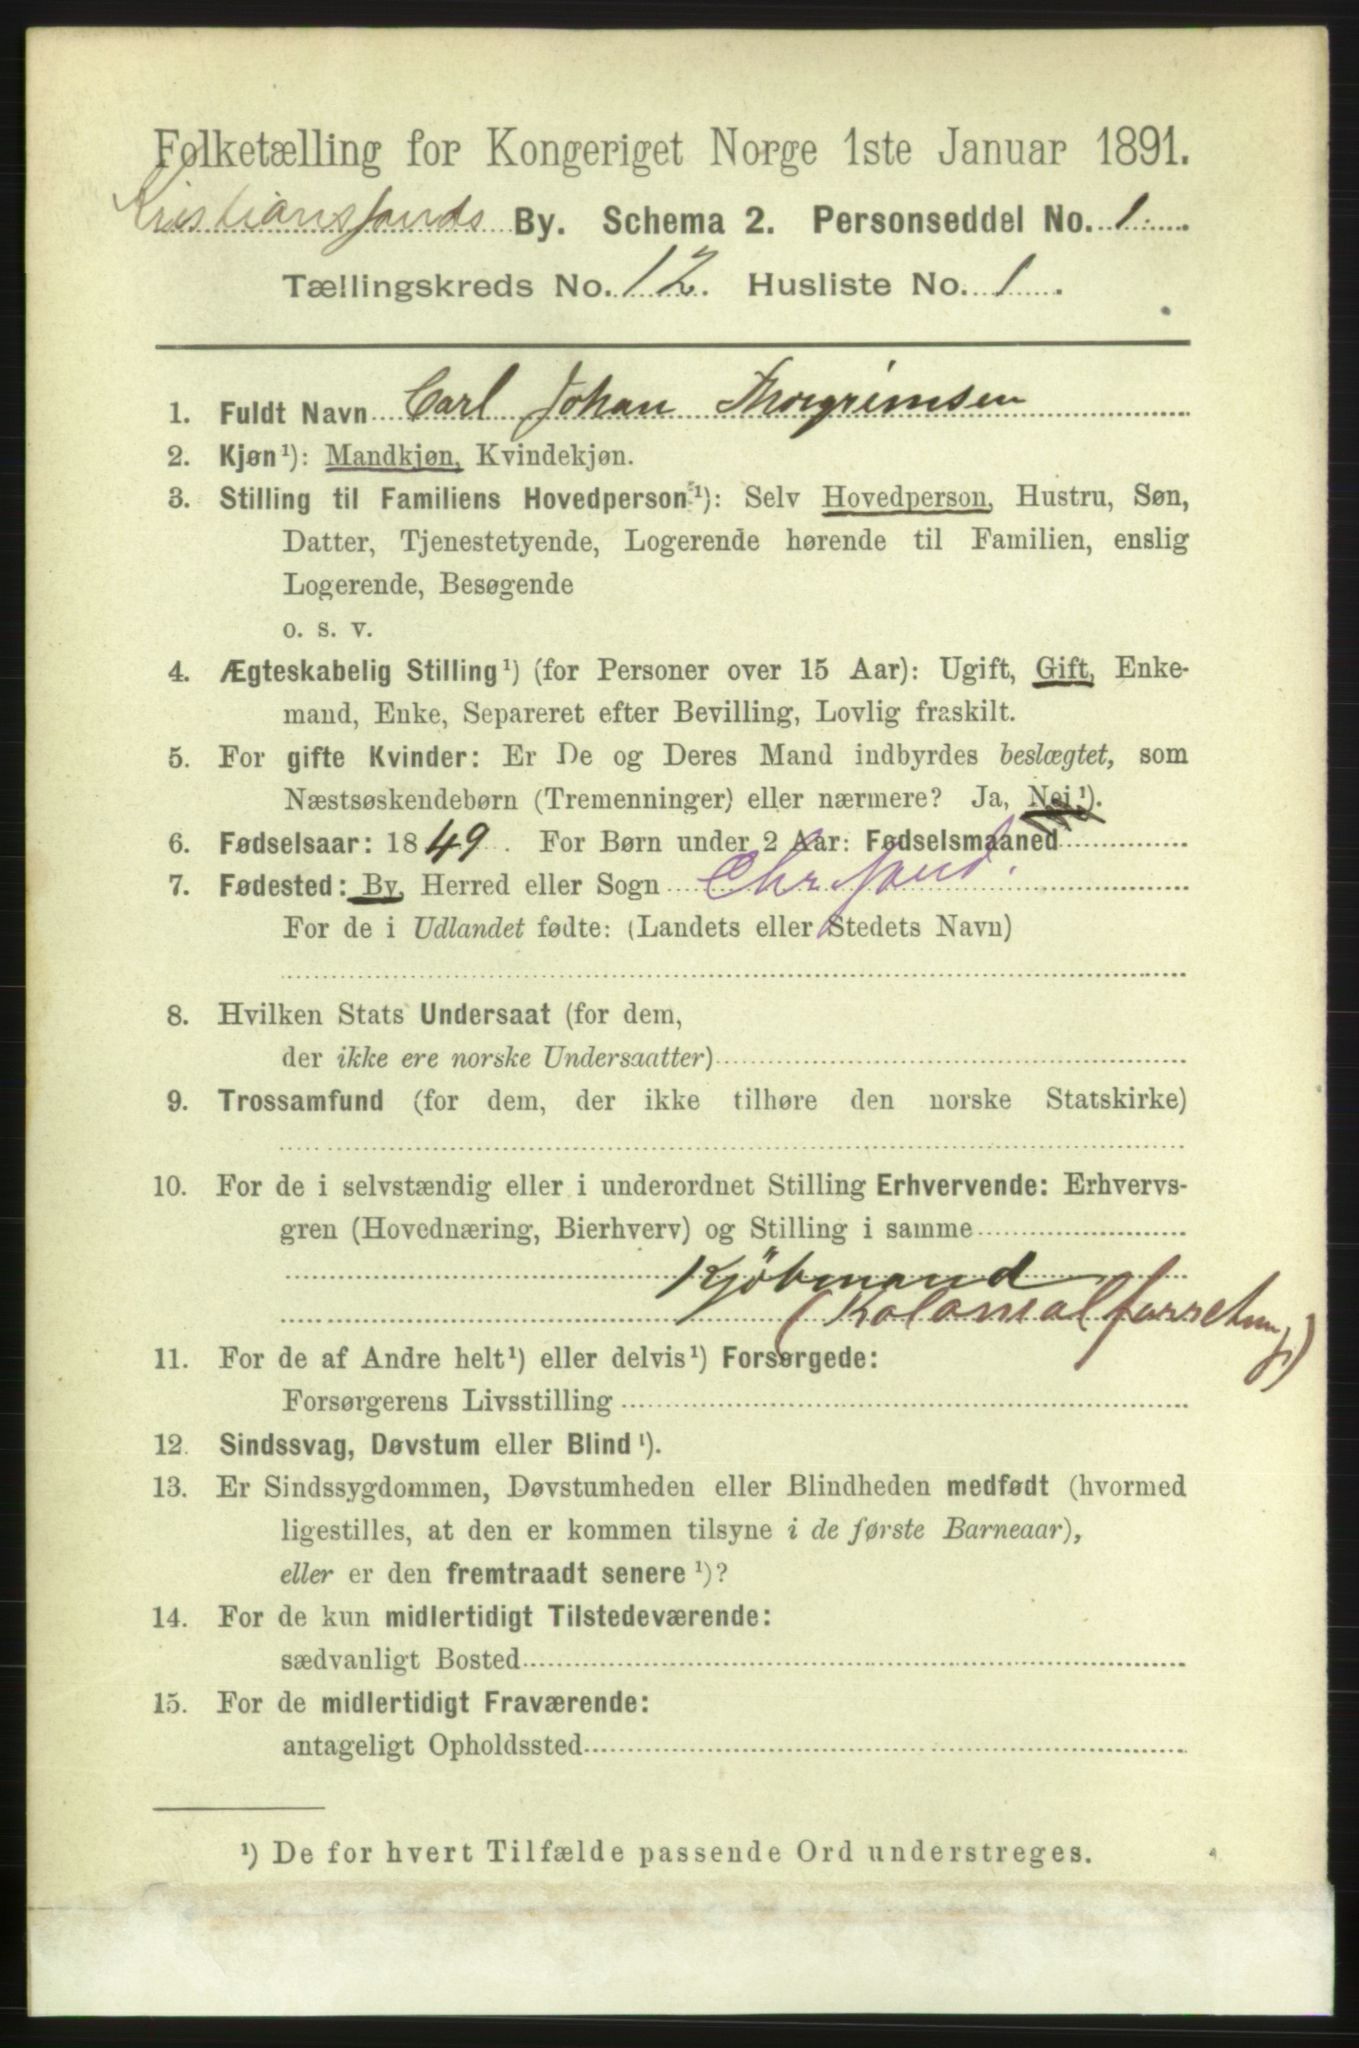 Folketælling for Kongeriget Norge 1ste Januar 1891.
Kristianssands By. Schema 2. Personseddel No. 1
Tællingskreds No. 12. Husliste No. 1.
1. Fuldt Navn Carl Johan Thorgrimsen
2. Kjøn¹): Mandkjøn, Kvindekjøn.
3. Stilling til Familiens Hovedperson¹): Selv Hovedperson, Hustru, Søn,
Datter, Tjenestetyende, Logerende hørende til Familien, enslig
Logerende, Besøgende
o. s. v.
4. Ægteskabelig Stilling¹) (for Personer over 15 Aar): Ugift, Gift, Enke-
mand, Enke, Separeret efter Bevilling, Lovlig fraskilt.
5. For gifte Kvinder: Er De og Deres Mand indbyrdes beslægtet, som
Næstsøskendebørn (Tremenninger) eller nærmere? Ja, Nei¹).
6. Fødselsaar: 1849. For Børn under 2 Aar: Fødselsmaaned
7. Fødested: By, Herred eller Sogn Chr.sand.
For de i Udlandet fødte: (Landets eller Stedets Navn)
8. Hvilken Stats Undersaat (for dem,
der ikke ere norske Undersaatter)
9. Trossamfund (for dem, der ikke tilhøre den norske Statskirke)
10. For de i selvstændig eller i underordnet Stilling Erhvervende: Erhvervs-
gren (Hovednæring, Bierhverv) og Stilling i samme
Kjöbmand
(Kolonialforretning)
11. For de af Andre helt¹) eller delvis¹) Forsørgede:
Forsørgerens Livsstilling
12. Sindssvag, Døvstum eller Blind¹).
13. Er Sindssygdommen, Døvstumheden eller Blindheden medfødt (hvormed
ligestilles, at den er kommen tilsyne i de første Barneaar),
eller er den fremtraadt senere¹)?
14. For de kun midlertidigt Tilstedeværende:
sædvanligt Bosted
15. For de midlertidigt Fraværende:
antageligt Opholdssted
¹) De for hvert Tilfælde passende Ord understreges.